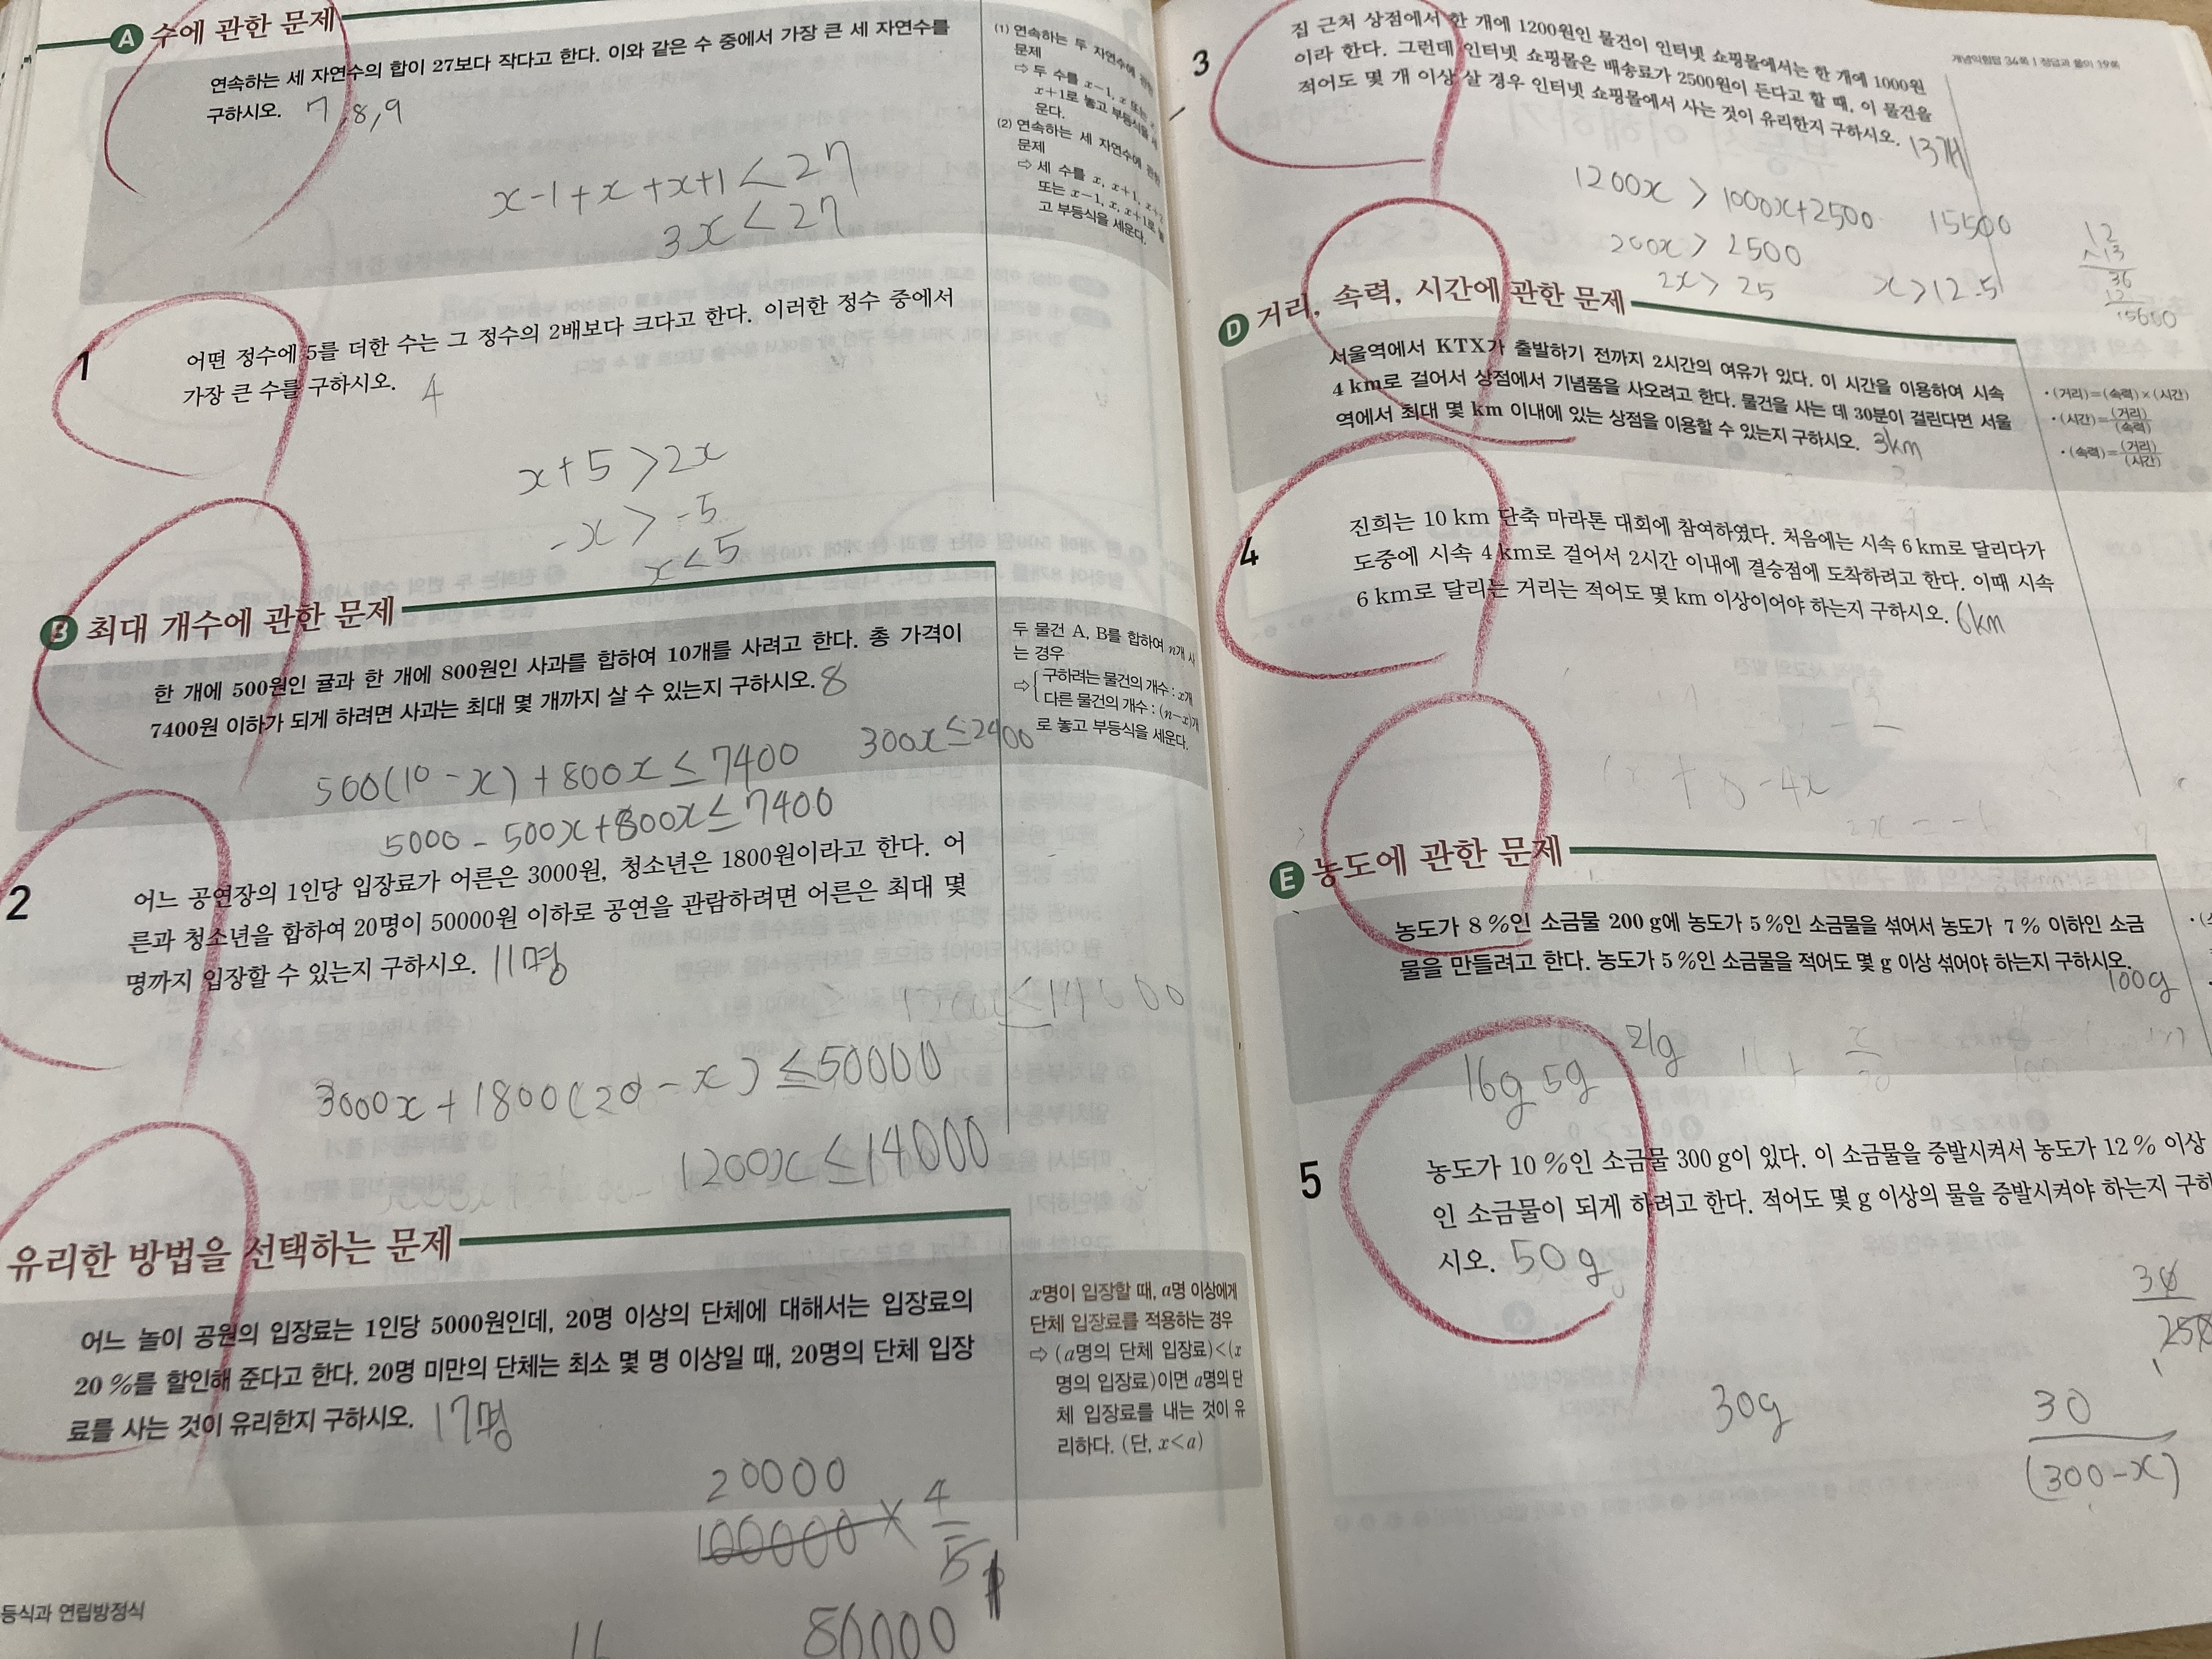 A 수에 관한 문제
연속하는 세 자연수의 합이 27보다 작다고 한다. 이와 같은 수 중에서 가장 큰 세 자연수를
구하시오. 7, 8, 9
x-1+x+x+1<27
3x<27
(1) 연속하는 두 자연수에 관한
문제
⇨ 두 수를 x-1, x 또는 x,
x+1로 놓고 부등식을 세
운다.
(2) 연속하는 세 자연수에 관한
문제
⇨ 세 수를 x, x+1, x+2
또는 x-1, x, x+1로 놓
고 부등식을 세운다.
1
어떤 정수에 5를 더한 수는 그 정수의 2배보다 크다고 한다. 이러한 정수 중에서
가장 큰 수를 구하시오. 4
x+5>2x
-x>-5
x<5
B 최대 개수에 관한 문제
한 개에 500원인 귤과 한 개에 800원인 사과를 합하여 10개를 사려고 한다. 총 가격이
7400원 이하가 되게 하려면 사과는 최대 몇 개까지 살 수 있는지 구하시오. 8
500(10-x)+800x≤7400 300x≤2400
5000-500x+800x≤7400
두 물건 A, B를 합하여 n개 사
는 경우
⇨ 구하려는 물건의 개수 : x개
다른 물건의 개수 : (n-x)개
로 놓고 부등식을 세운다.
2
어느 공연장의 1인당 입장료가 어른은 3000원, 청소년은 1800원이라고 한다. 어
른과 청소년을 합하여 20명이 50000원 이하로 공연을 관람하려면 어른은 최대 몇
명까지 입장할 수 있는지 구하시오. 11명
1200x≤14000
3000x+1800(20-x)≤50000
1200x≤14000
유리한 방법을 선택하는 문제
어느 놀이 공원의 입장료는 1인당 5000원인데, 20명 이상의 단체에 대해서는 입장료의
20 %를 할인해 준다고 한다. 20명 미만의 단체는 최소 몇 명 이상일 때, 20명의 단체 입장
료를 사는 것이 유리한지 구하시오. 17명
20000
100000×4/5
80000
16
x명이 입장할 때, a명 이상에게
단체 입장료를 적용하는 경우
⇨ (a명의 단체 입장료)<(x
명의 입장료)이면 a명의 단
체 입장료를 내는 것이 유
리하다. (단, x<a)
등식과 연립방정식
개념익힘탑 36쪽 | 정답과 풀이 19쪽
3
집 근처 상점에서 한 개에 1200원인 물건이 인터넷 쇼핑몰에서는 한 개에 1000원
이라 한다. 그런데 인터넷 쇼핑몰은 배송료가 2500원이 든다고 할 때, 이 물건을
적어도 몇 개 이상 살 경우 인터넷 쇼핑몰에서 사는 것이 유리한지 구하시오. 13개
1200x>1000x+2500 15500
200x>2500
2x>25 x>12.5
12
×13
36
12
15600
D 거리, 속력, 시간에 관한 문제
서울역에서 KTX가 출발하기 전까지 2시간의 여유가 있다. 이 시간을 이용하여 시속
4 km로 걸어서 상점에서 기념품을 사오려고 한다. 물건을 사는 데 30분이 걸린다면 서울
역에서 최대 몇 km 이내에 있는 상점을 이용할 수 있는지 구하시오. 3km
• (거리)=(속력)×(시간)
• (시간)=(거리)/(속력)
• (속력)=(거리)/(시간)
4
진희는 10 km 단축 마라톤 대회에 참여하였다. 처음에는 시속 6 km로 달리다가
도중에 시속 4 km로 걸어서 2시간 이내에 결승점에 도착하려고 한다. 이때 시속
6 km로 달리는 거리는 적어도 몇 km 이상이어야 하는지 구하시오. 6km
E 농도에 관한 문제
농도가 8 %인 소금물 200 g에 농도가 5 %인 소금물을 섞어서 농도가 7 % 이하인 소금
물을 만들려고 한다. 농도가 5 %인 소금물을 적어도 몇 g 이상 섞어야 하는지 구하시오.
100g
16g 5g 21g
5
농도가 10 %인 소금물 300 g이 있다. 이 소금물을 증발시켜서 농도가 12 % 이상
인 소금물이 되게 하려고 한다. 적어도 몇 g 이상의 물을 증발시켜야 하는지 구하
시오. 50g
30/250
30g
30/(300-x)